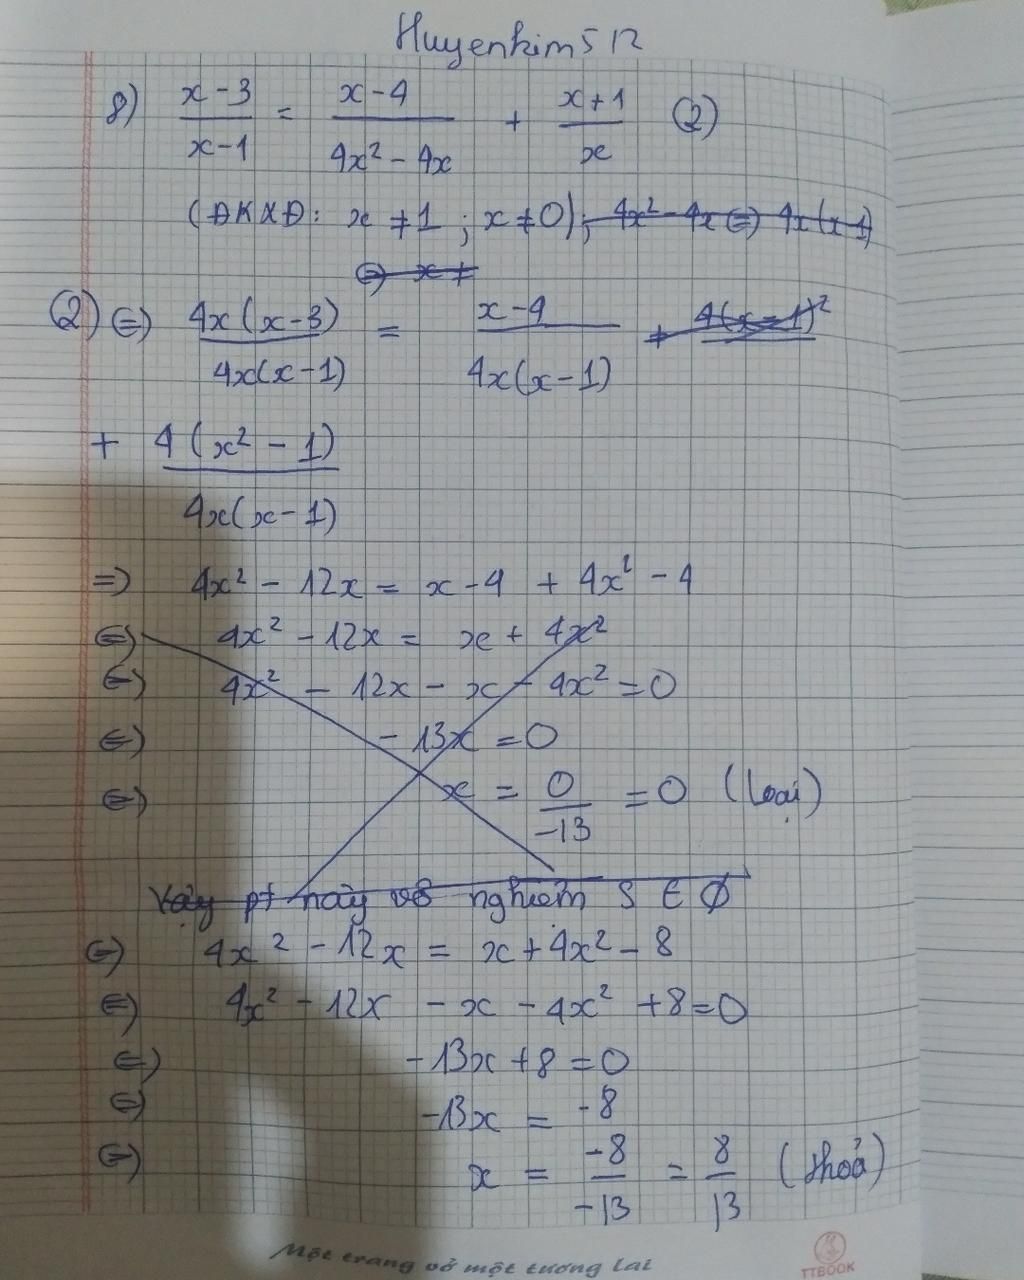 Huyenkim512
8) (x-3)/(x-1) = (x-4)/(4x² - 4x) + (x+1)/x (2)
(ĐKXĐ: x ≠ 1 ; x ≠ 0) ; 4x² - 4x ⇔ 4x(x-1)
⇔ x ≠
(2) ⇔ 4x(x-3)/4x(x-1) = (x-4)/4x(x-1) + 4(x-1)²
+ 4(x² - 1)/4x(x-1)
⇒ 4x² - 12x = x - 4 + 4x² - 4
⇔ 4x² - 12x = x + 4x²
⇔ 4x² - 12x - x - 4x² = 0
⇔ -13x = 0
⇔ x = 0/-13 = 0 (loại)
Vậy pt này vô nghiệm S ∈ Ø
⇔ 4x² - 12x = x + 4x² - 8
⇔ 4x² - 12x - x - 4x² + 8 = 0
⇔ -13x + 8 = 0
⇔ -13x = -8
⇔ x = -8/-13 = 8/13 (thoả)
Một trang vở một tương lai
TTBOOK